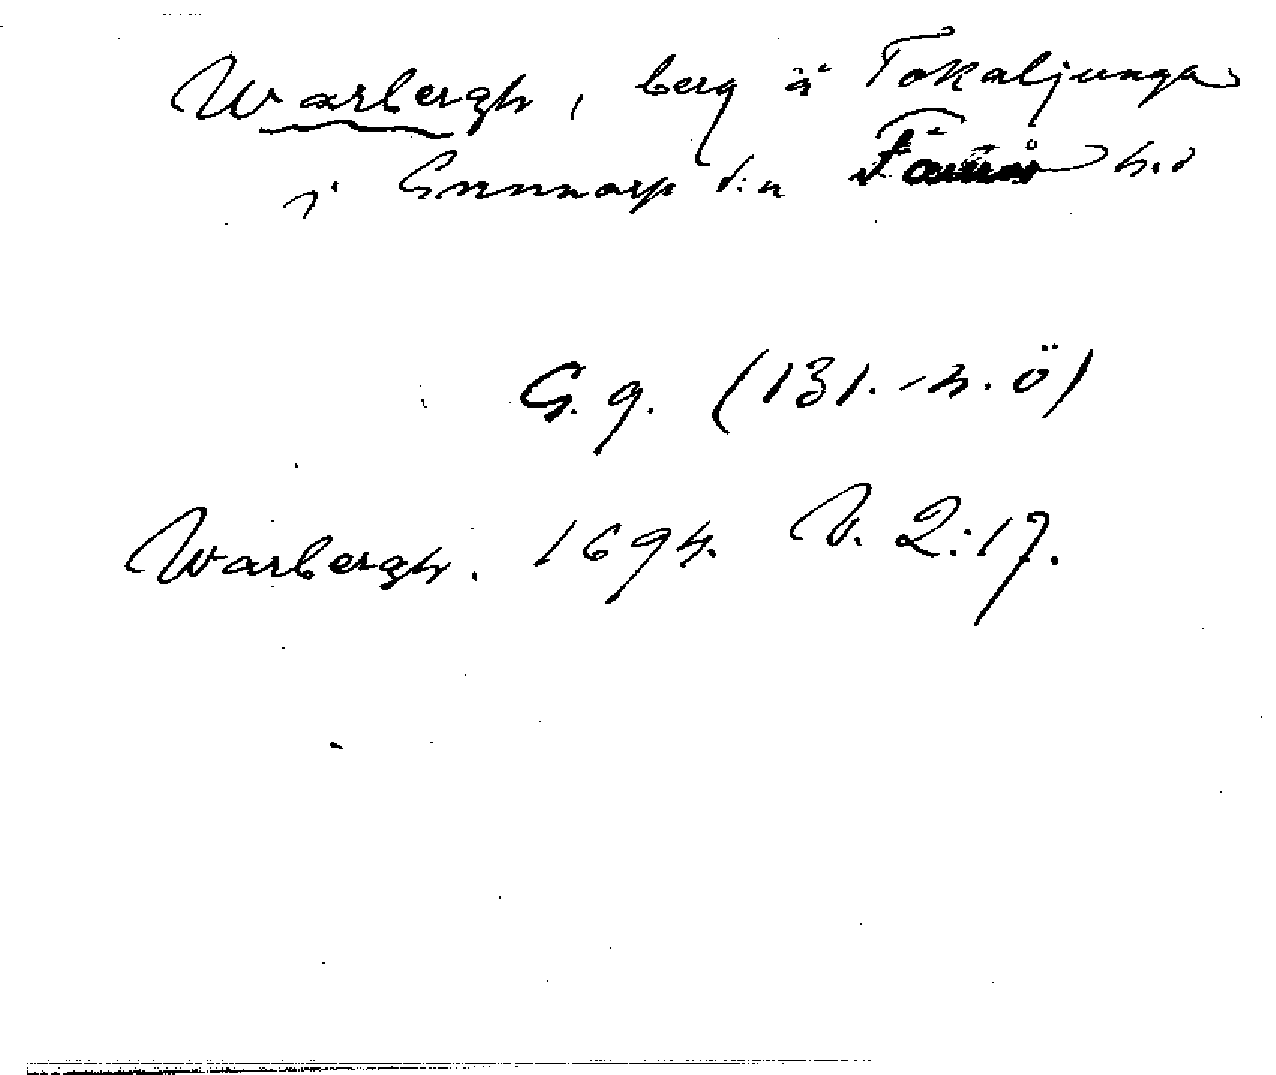 Warbergh, berg å Tokaljunga
i Gunnarp sn Fauås hd
G. g. (131. n. ö)
Warbergh. 1694. V. 2:17.